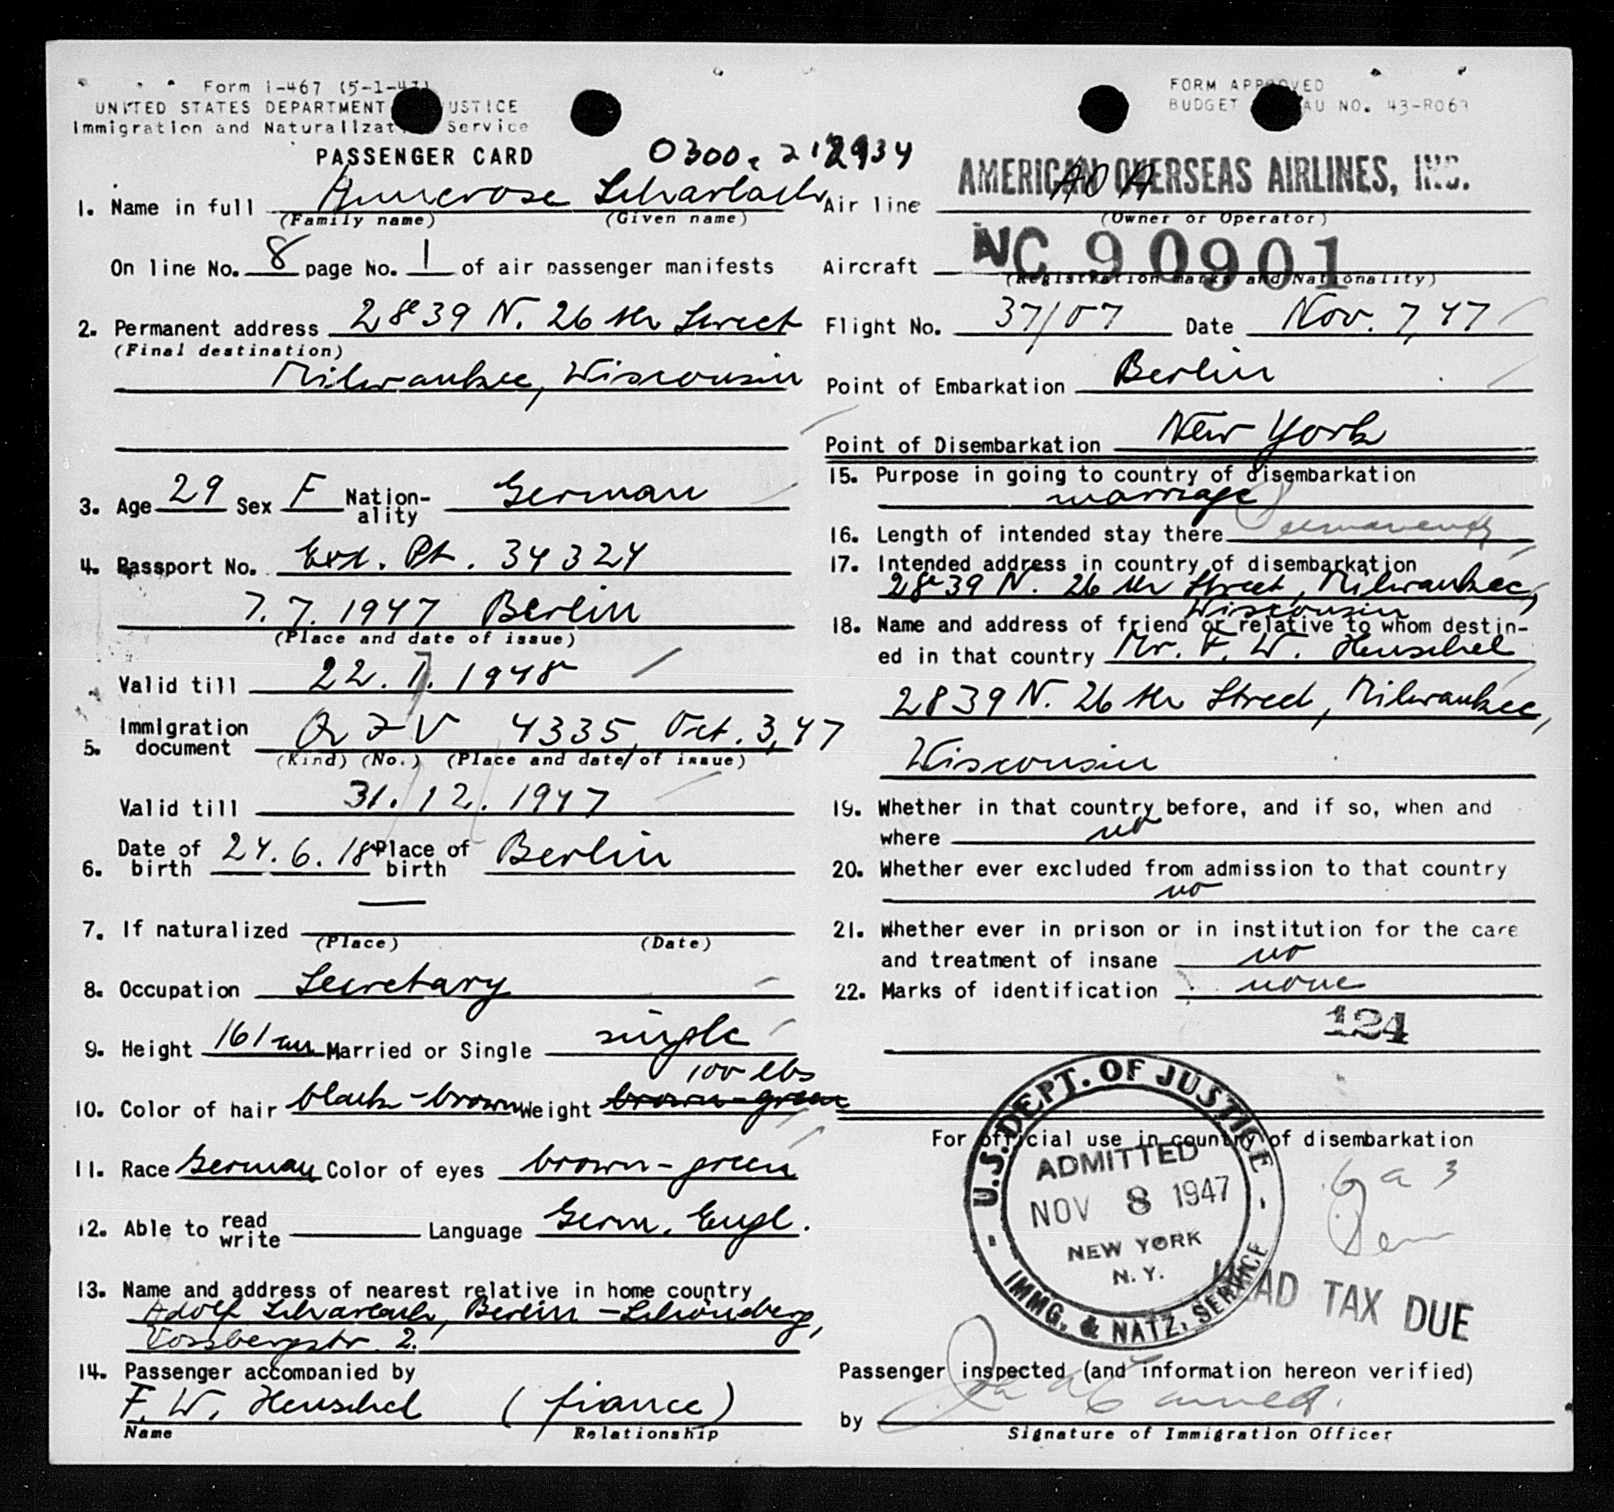 Form I-467 (5-1-47)
UNITED STATES DEPARTMENT JUSTICE
Immigration and Naturalization Service
PASSENGER CARD
0300, 212934
1. Name in full Annerose Scharlach
(Family name) (Given name)
On line No. 8 page No. 1 of air passenger manifests
2. Permanent address 2839 N. 26 th Street
(Final destination)
Milwaukee, Wisconsin
3. Age 29 Sex F Nation-ality German
4. Passport No. Ext. Pt. 34324
7.7.1947 Berlin
(Place and date of issue)
Valid till 22.1.1948
5. Immigration document QIV 4335, Oct. 3, 47
(Kind) (No.) (Place and date of issue)
Valid till 31.12.1947
6. Date of birth 24.6.18 Place of birth Berlin
7. If naturalized —
(Place) (Date)
8. Occupation Secretary
9. Height 161 cm Married or Single single
100 lbs
10. Color of hair black-brown Weight brown-green
11. Race German Color of eyes brown-green
12. Able to read write Language Germ. Engl.
13. Name and address of nearest relative in home country
Adolf Scharlach, Berlin-Schöneberg,
Vossbergstr. 2.
14. Passenger accompanied by
F. W. Henschel (fiance)
Name Relationship
FORM APPROVED
BUDGET BUREAU NO. 43-R069
AMERICAN OVERSEAS AIRLINES, INC.
Air line AOA
(Owner or Operator)
Aircraft NC 90901
(Registration marks and Nationality)
Flight No. 37/07 Date Nov. 7, 47
Point of Embarkation Berlin
Point of Disembarkation New York
15. Purpose in going to country of disembarkation
marriage
16. Length of intended stay there Permanently
17. Intended address in country of disembarkation
2839 N. 26 th Street, Milwaukee,
Wisconsin
18. Name and address of friend or relative to whom destin-
ed in that country Mr. F. W. Henschel
2839 N. 26 th Street, Milwaukee,
Wisconsin
19. Whether in that country before, and if so, when and
where no
20. Whether ever excluded from admission to that country
no
21. Whether ever in prison or in institution for the care
and treatment of insane no
22. Marks of identification none
124
For official use in country of disembarkation
U.S. DEPT. OF JUSTICE
ADMITTED
NOV 8 1947
NEW YORK
N.Y.
IMMG. & NATZ. SERVICE
HEAD TAX DUE
Passenger inspected (and information hereon verified)
by
Signature of Immigration Officer